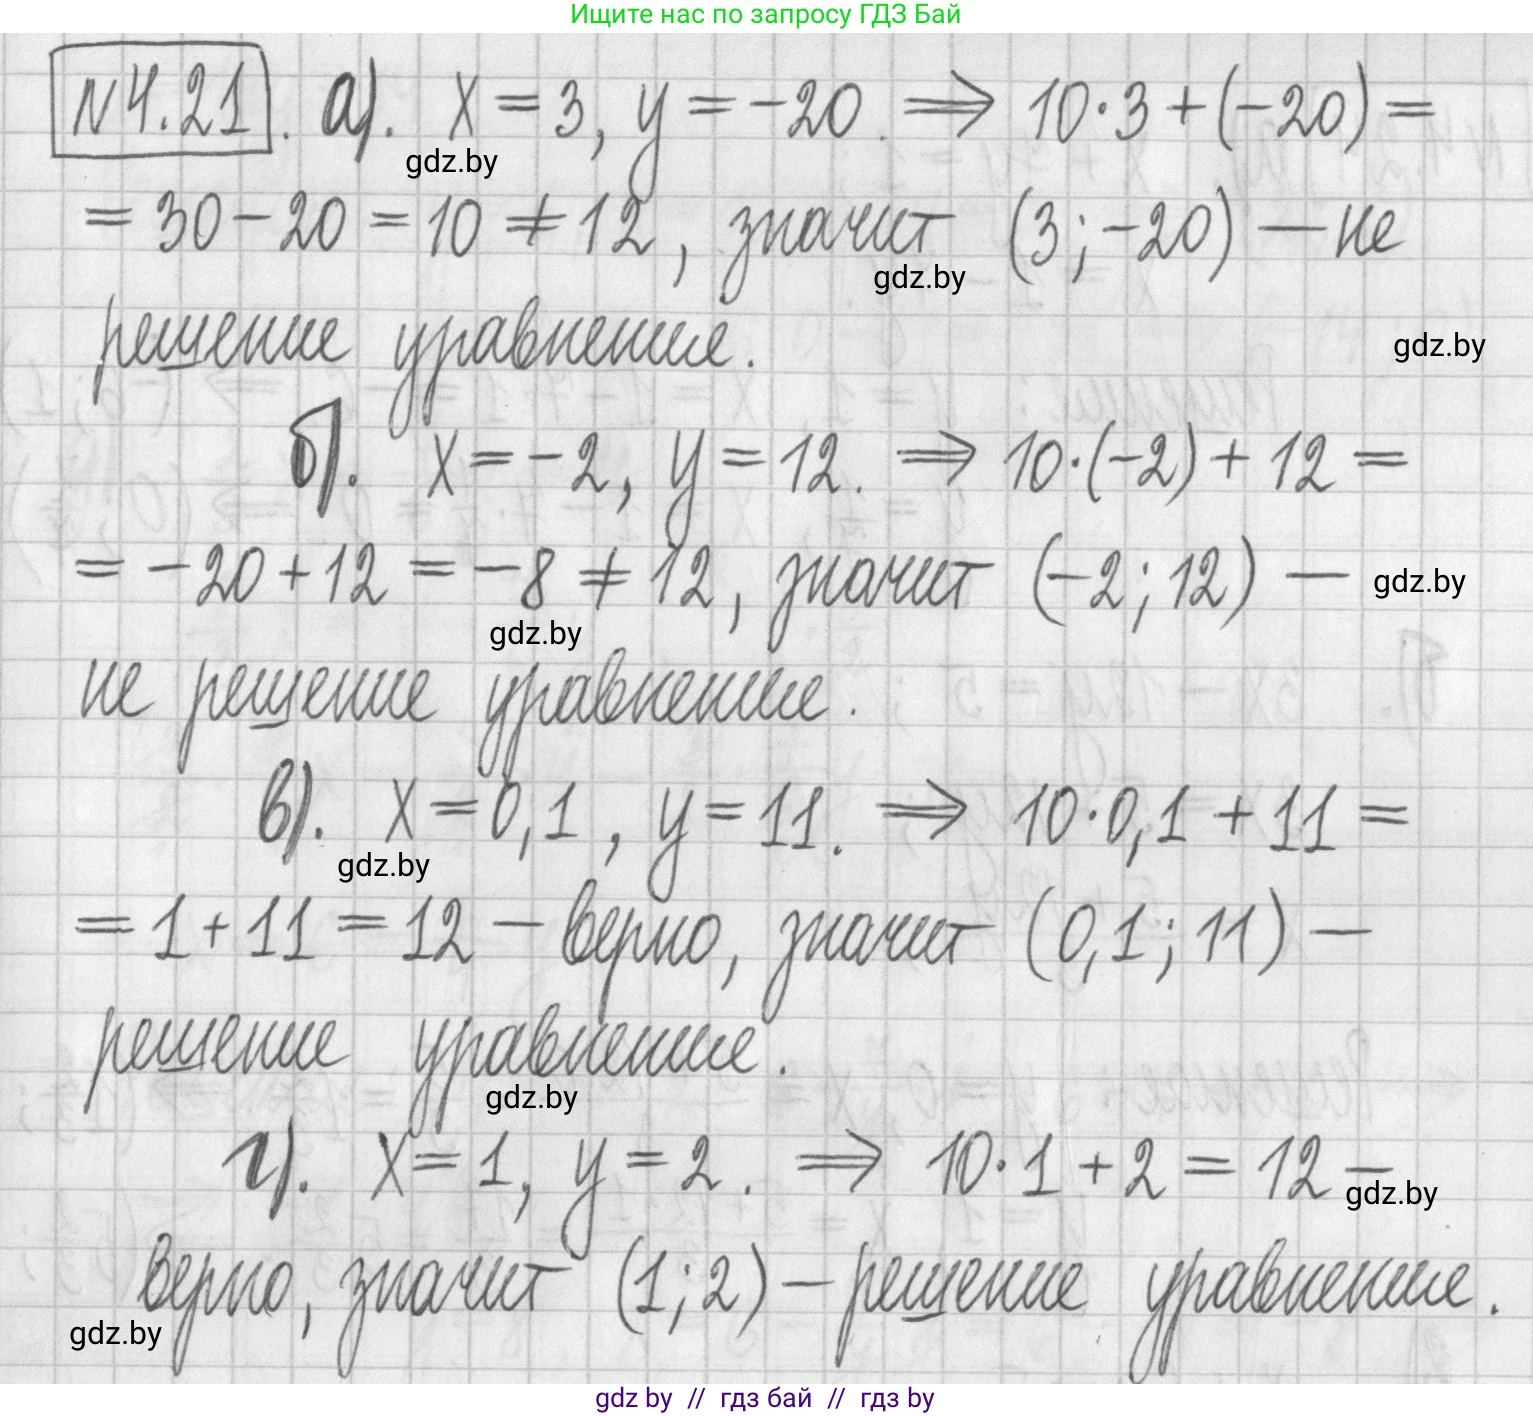 Ищите нас по запросу ГДЗ Бай
№4.21. а). x = 3, y = -20. ⇒ 10·3 + (-20) =
gdz.by
= 30 - 20 = 10 ≠ 12, значит (3; -20) — не
gdz.by
решение уравнения.
gdz.by
б). x = -2, y = 12. ⇒ 10·(-2) + 12 =
= -20 + 12 = -8 ≠ 12, значит (-2; 12) —
gdz.by
gdz.by
не решение уравнения.
в). x = 0,1, y = 11. ⇒ 10·0,1 + 11 =
gdz.by
= 1 + 11 = 12 - верно, значит (0,1; 11) —
решение уравнения.
gdz.by
г). x = 1, y = 2. ⇒ 10·1 + 2 = 12 —
gdz.by
верно, значит (1; 2) — решение уравнения.
gdz.by
gdz by // гдз бай // гдз by